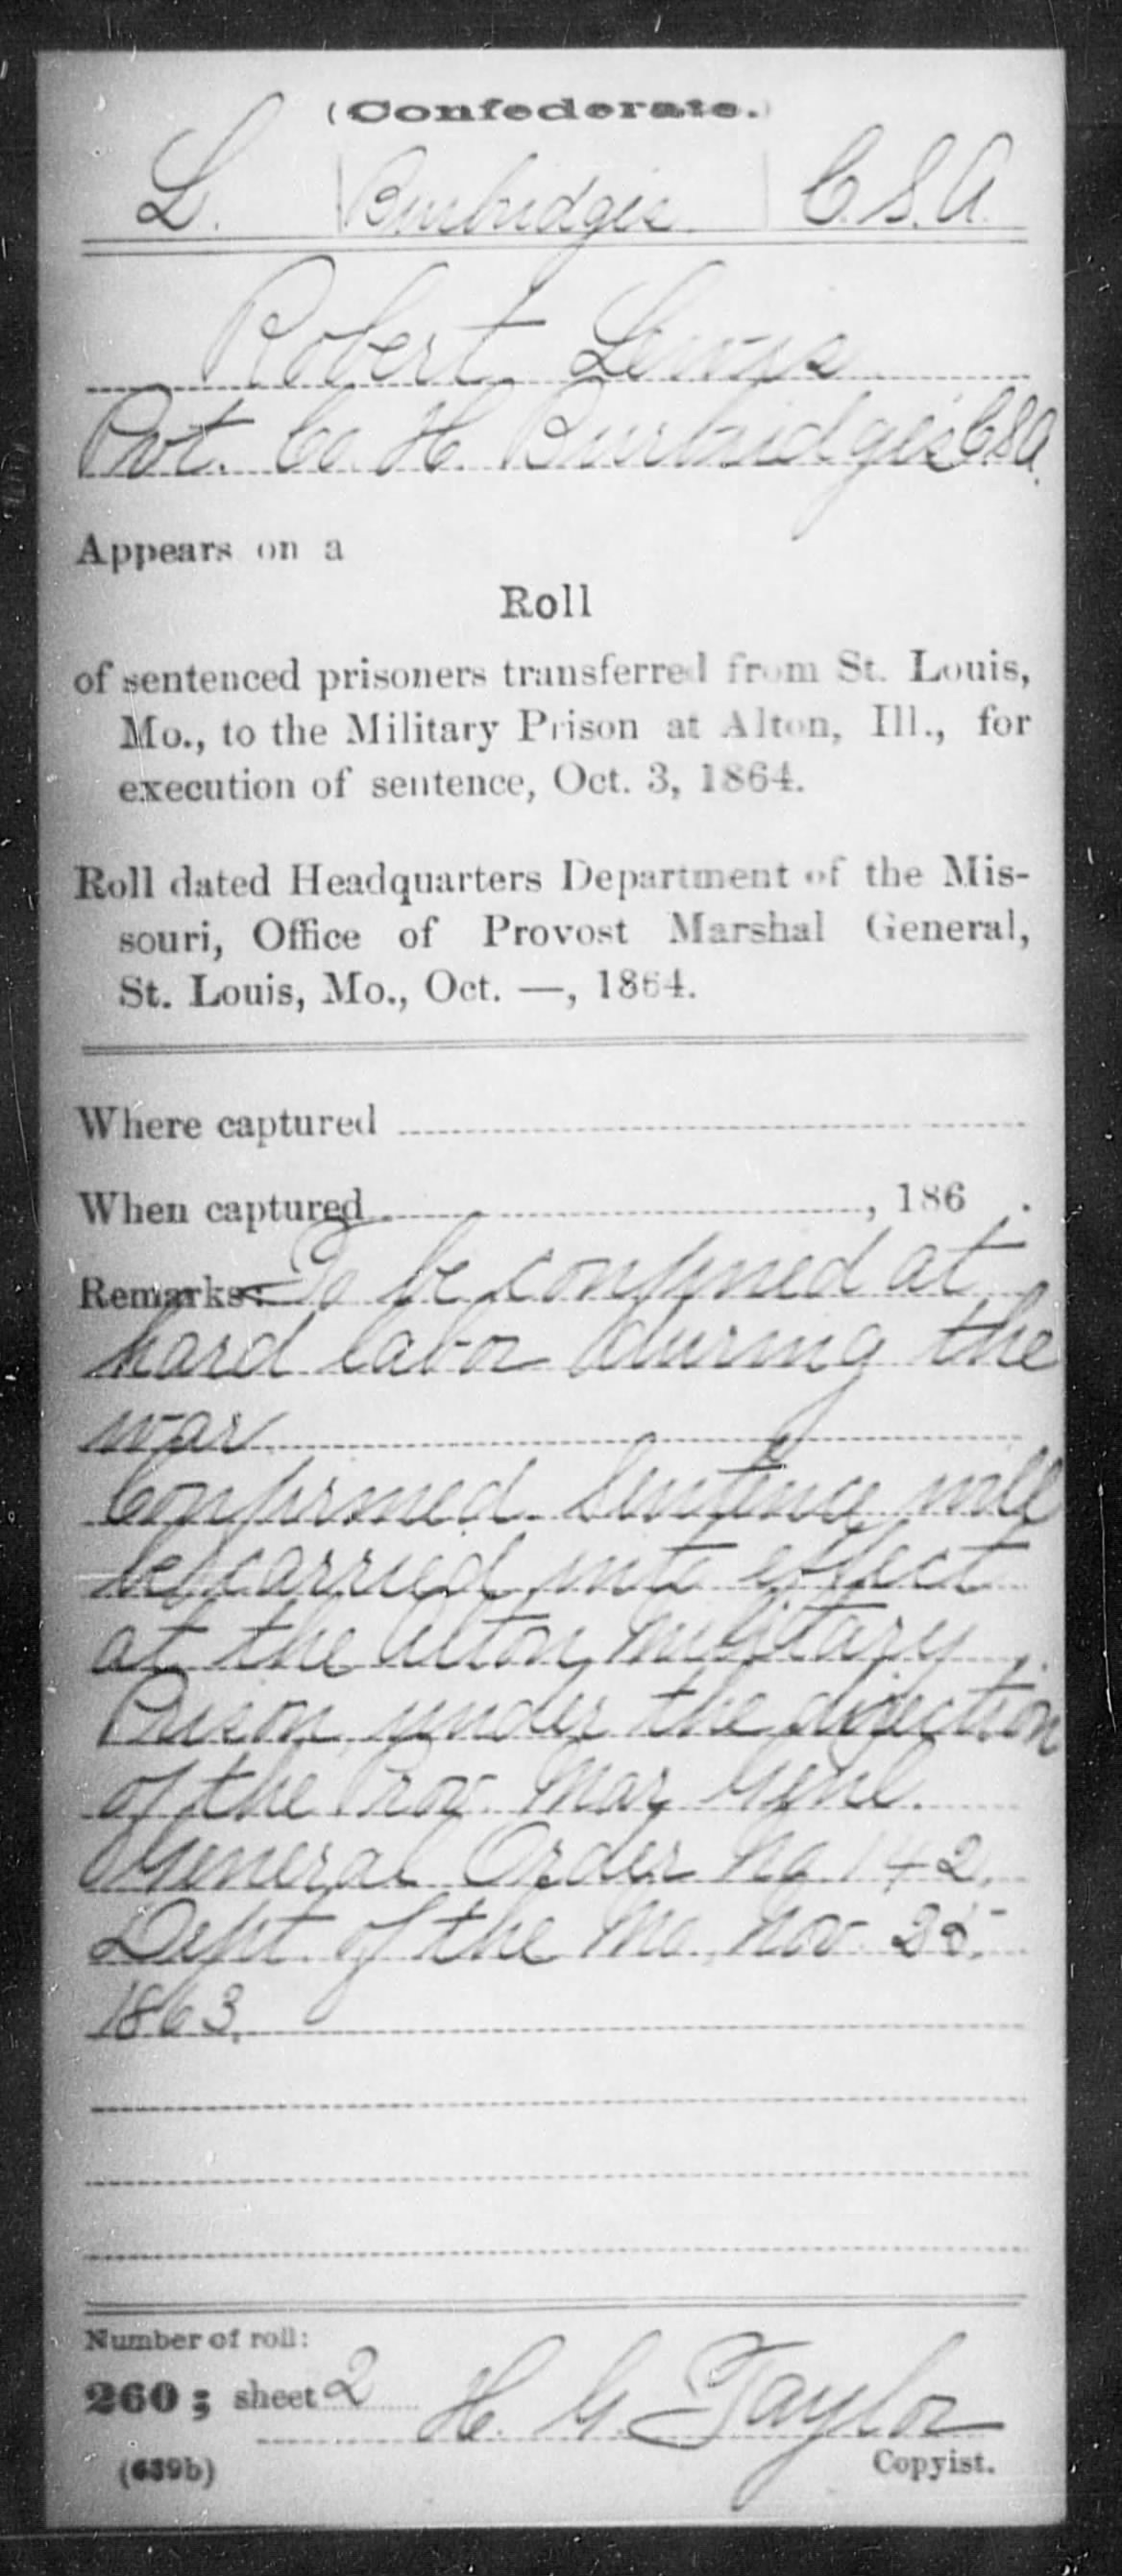 (Confederate.)
L. Burbidgis C.S.A.
Robert Lewis
Pvt. Co. H. Burbridges C.S.A.
Appears on a
Roll
of sentenced prisoners transferred from St. Louis,
Mo., to the Military Prison at Alton, Ill., for
execution of sentence, Oct. 3, 1864.
Roll dated Headquarters Department of the Mis-
souri, Office of Provost Marshal General,
St. Louis, Mo., Oct. —, 1864.
Where captured
When captured , 186 .
Remarks: To be confined at
hard labor during the
war
Confirmed. Sentence will
be carried into effect
at the Alton Military
Prison under the direction
of the Prov. Mar. Genl.
General Order No 142.
Dept. of the Mo. Nov. 25.
1863.
Number of roll:
260; sheet 2 H. G. Taylor
(639b) Copyist.